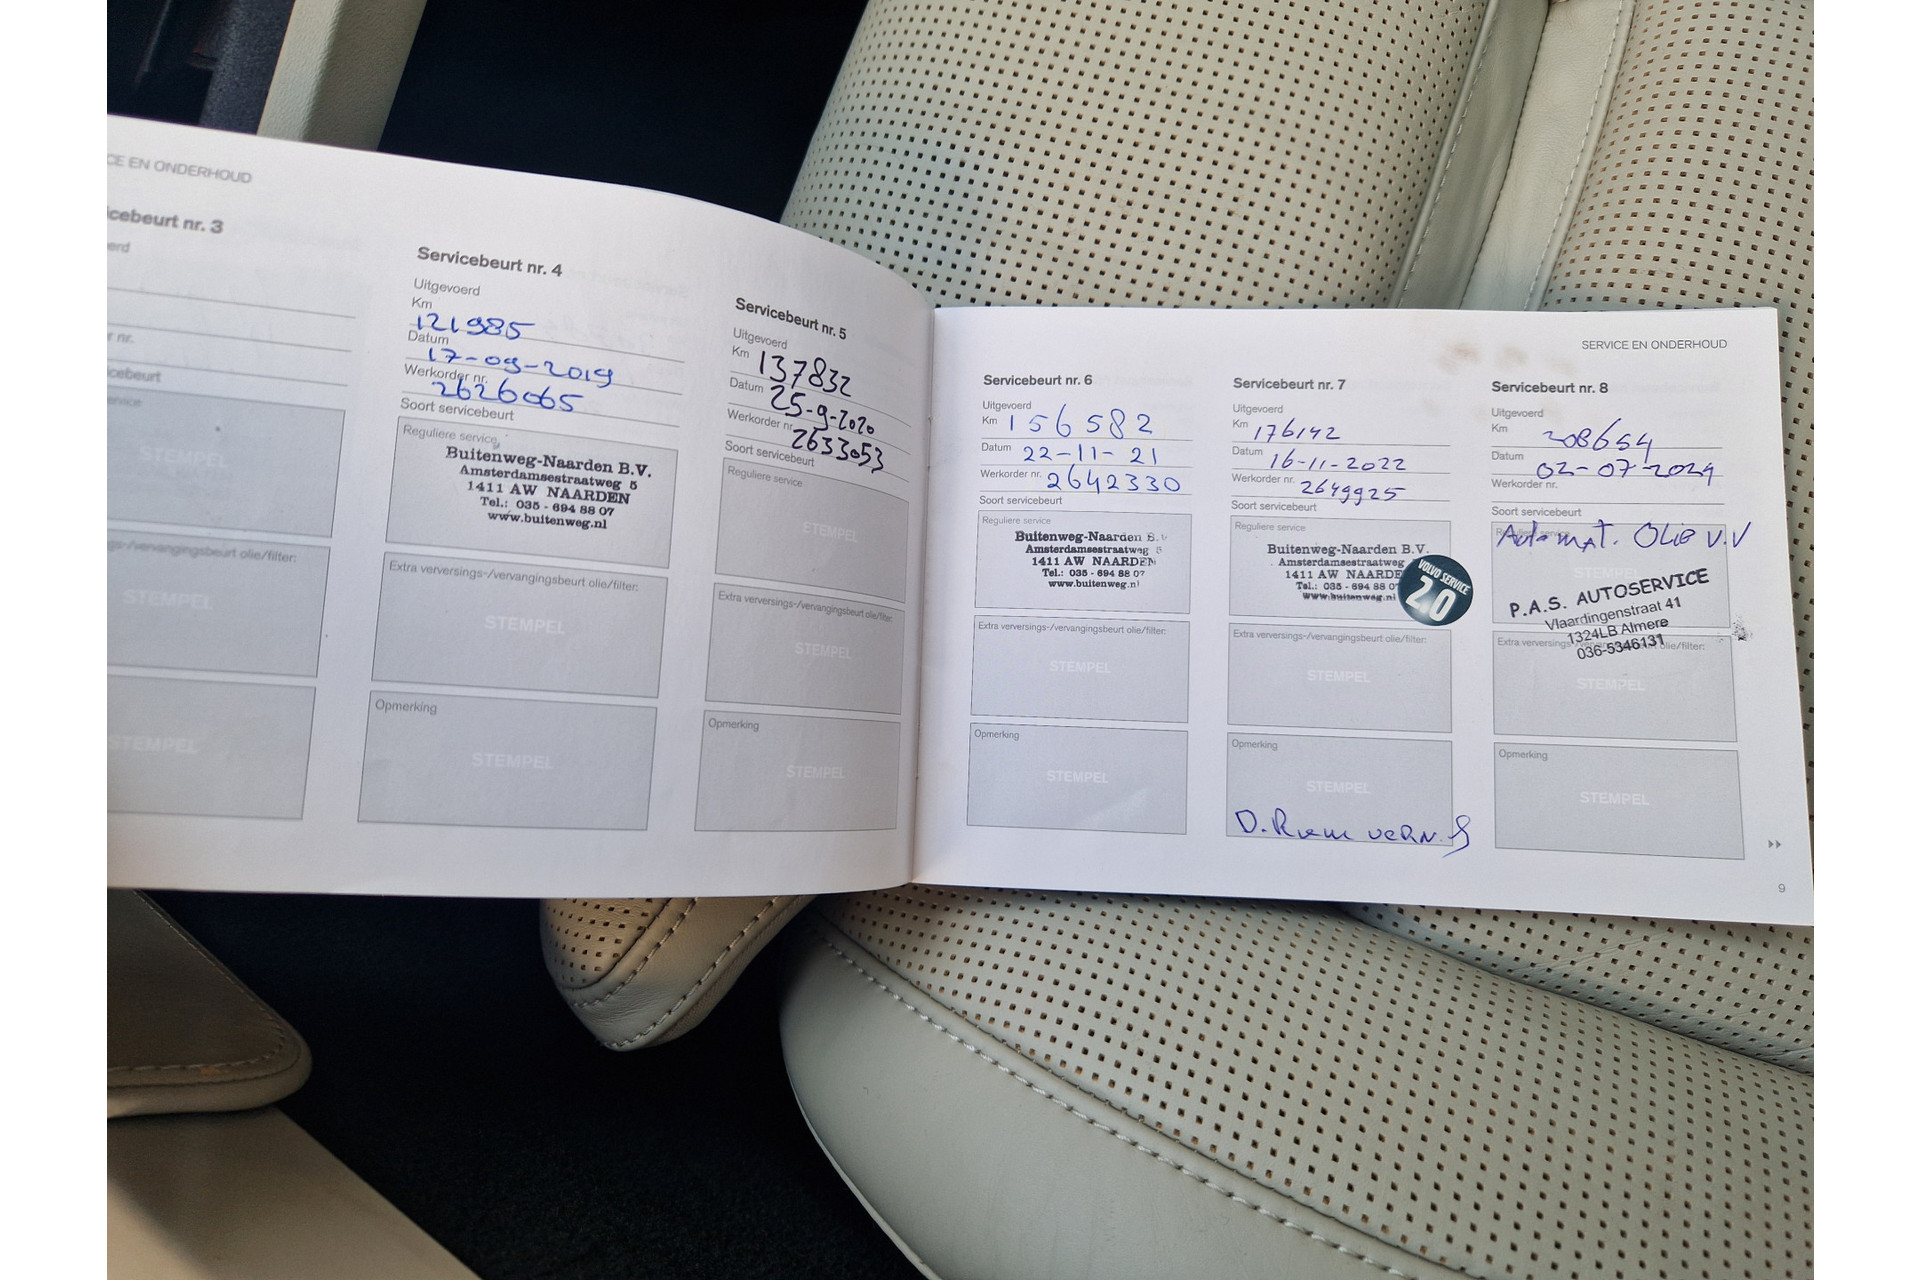 CE EN ONDERHOUD
icebeurt nr. 3
erd
r nr.
cebeurt
ervice
STEMPEL
gs-/vervangingsbeurt olie/filter:
STEMPEL
STEMPEL
Servicebeurt nr. 4
Uitgevoerd
Km
121985
Datum
17-09-2019
Werkorder nr.
2626065
Soort servicebeurt
Reguliere service
Buitenweg-Naarden B.V.
Amsterdamsestraatweg 5
1411 AW NAARDEN
Tel.: 035 - 694 88 07
www.buitenweg.nl
Extra verversings-/vervangingsbeurt olie/filter:
STEMPEL
Opmerking
STEMPEL
Servicebeurt nr. 5
Uitgevoerd
Km 137832
Datum 25-9-2020
Werkorder nr. 2633053
Soort servicebeurt
Reguliere service
STEMPEL
Extra verversings-/vervangingsbeurt olie/filter:
STEMPEL
Opmerking
STEMPEL
SERVICE EN ONDERHOUD
Servicebeurt nr. 6
Uitgevoerd
Km 156582
Datum 22-11-21
Werkorder nr. 2642330
Soort servicebeurt
Reguliere service
Buitenweg-Naarden B.V
Amsterdamsestraatweg 5
1411 AW NAARDEN
Tel.: 035 - 694 88 07
www.buitenweg.nl
Extra verversings-/vervangingsbeurt olie/filter:
STEMPEL
Opmerking
STEMPEL
Servicebeurt nr. 7
Uitgevoerd
Km 176142
Datum 16-11-2022
Werkorder nr. 2649925
Soort servicebeurt
Reguliere service
Buitenweg-Naarden B.V.
Amsterdamsestraatweg
1411 AW NAARDE
Tel.: 035 - 694 88 07
www.buitenweg.nl
VOLVO SERVICE
2.0
Extra verversings-/vervangingsbeurt olie/filter:
STEMPEL
Opmerking
STEMPEL
D. Riem VERN.
Servicebeurt nr. 8
Uitgevoerd
Km 208654
Datum 02-07-2024
Werkorder nr.
Soort servicebeurt
Automat. Olie V.V
STEMPEL
P.A.S. AUTOSERVICE
Vlaardingenstraat 41
1324LB Almere
036-5346131
Extra verversings-/vervangingsbeurt olie/filter:
STEMPEL
Opmerking
STEMPEL
9